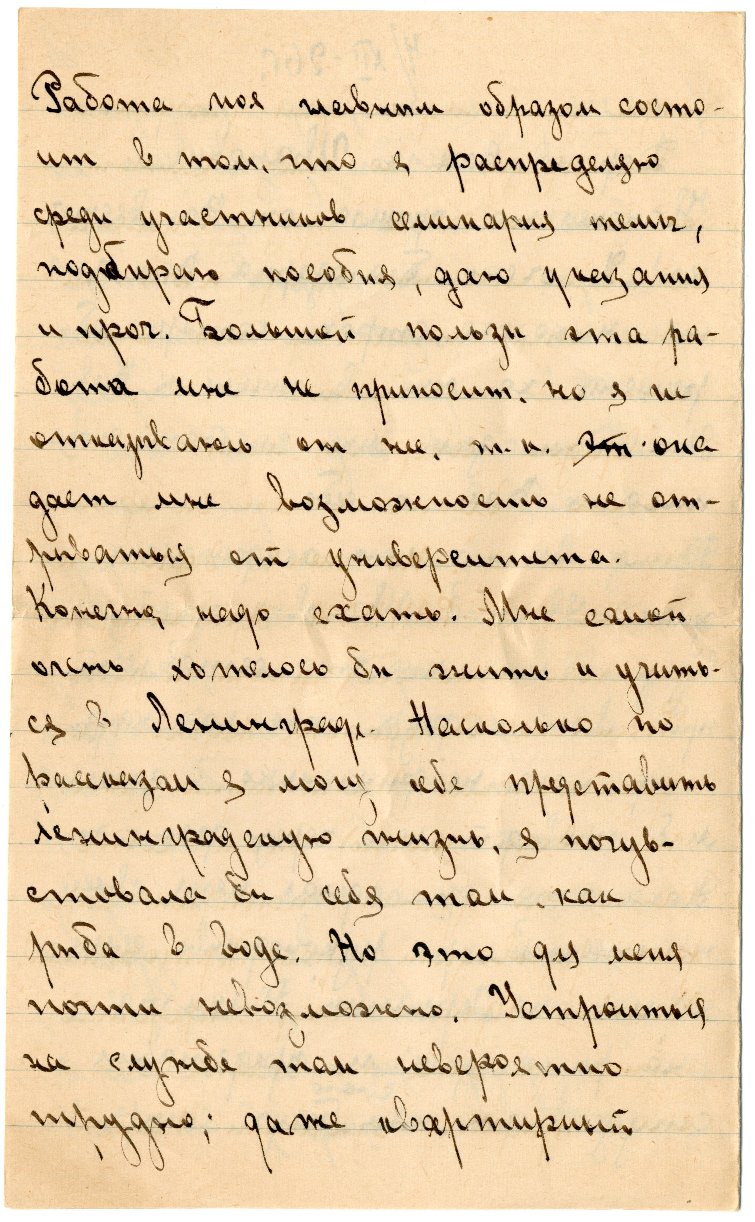 Работа моя главным образом состо-
ит в том, что я распределяю
среди участников семинария темы,
подбираю пособия, даю указания
и проч. Большой пользы эта ра-
бота мне не приносит, но я не
отказываюсь от нее, т.к. эт она
дает мне возможность не от-
рываться от университета.
Конечно, надо ехать. Мне самой
очень хотелось бы жить и учить-
ся в Ленинграде. Насколько по
рассказам я могу себе представить
ленинградскую жизнь, я почув-
ствовала бы себя там, как
рыба в воде. Но это для меня
почти невозможно. Устроиться
на службе там невероятно
трудно; даже квартирный